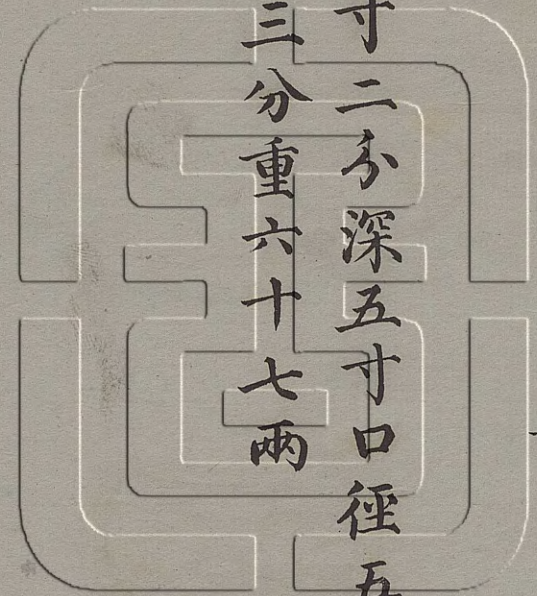 寸二分深五寸口徑五
三分重六十七兩